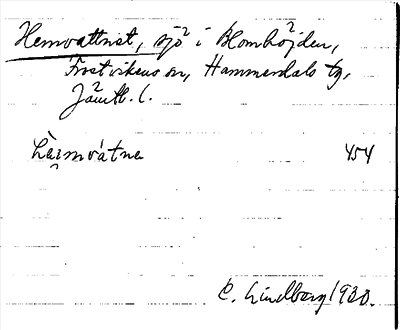 Hemvattnet, sjö i Blomhöjden,
Frostvikens sn, Hammerdals tg,
Jämtl. l.
hàimvátne 454
C. Lindberg 1930.